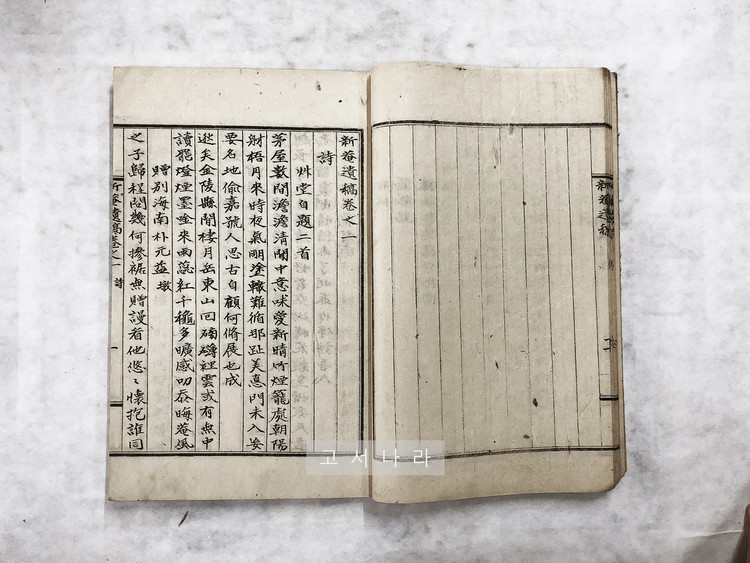 新菴遺稿
新菴遺稿卷之一
詩
艸堂自題二首
茅屋數間澹澹清閒中意味愛新晴竹煙籠處朝陽
射梧月來時夜氣明塗轍難循那趾美惪門未入妄
要名地偸嘉號人思古自顧何脩展也成
逖矣金陵縣閒棲月岳東山回磵礴裡雲或有無中
讀罷燈煙墨唫來雨蕊紅千穐多曠感叨忝晦菴風
贈別海南朴元益墩
之子歸程問幾何摻裾無贈謾看他悠〻懷抱誰同
新菴遺稿卷之一 詩 一
고서나라